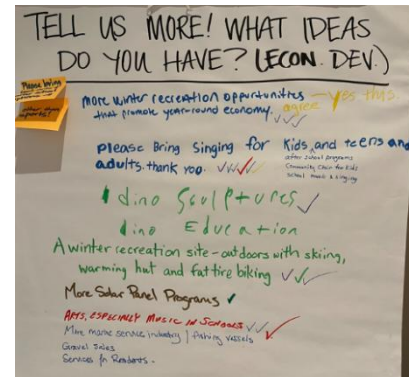 TELL US MORE! WHAT IDEAS
DO YOU HAVE? (ECON. DEV.)
Please bring
other than
more winter recreation opportunities — yes this.
that promote year-round economy. agree
Please Bring Singing for Kids, and teens and
adults. thank you.
after school programs
Community Choir for Kids
School music & singing
dino Sculptures
dino Education
A winter recreation site - outdoors with skiing,
warming hut and fat tire biking
More Solar Panel Programs
ARTS, ESPECIALLY MUSIC IN SCHOOLS
More marine service industry / fishing vessels
Gravel Sales
Services for Residents.